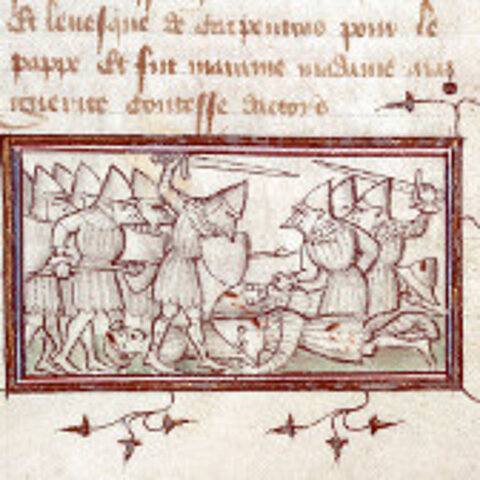 Et levesque de carpentras pour le
pappe Et fut marrine madame mar
guerite contesse dartois